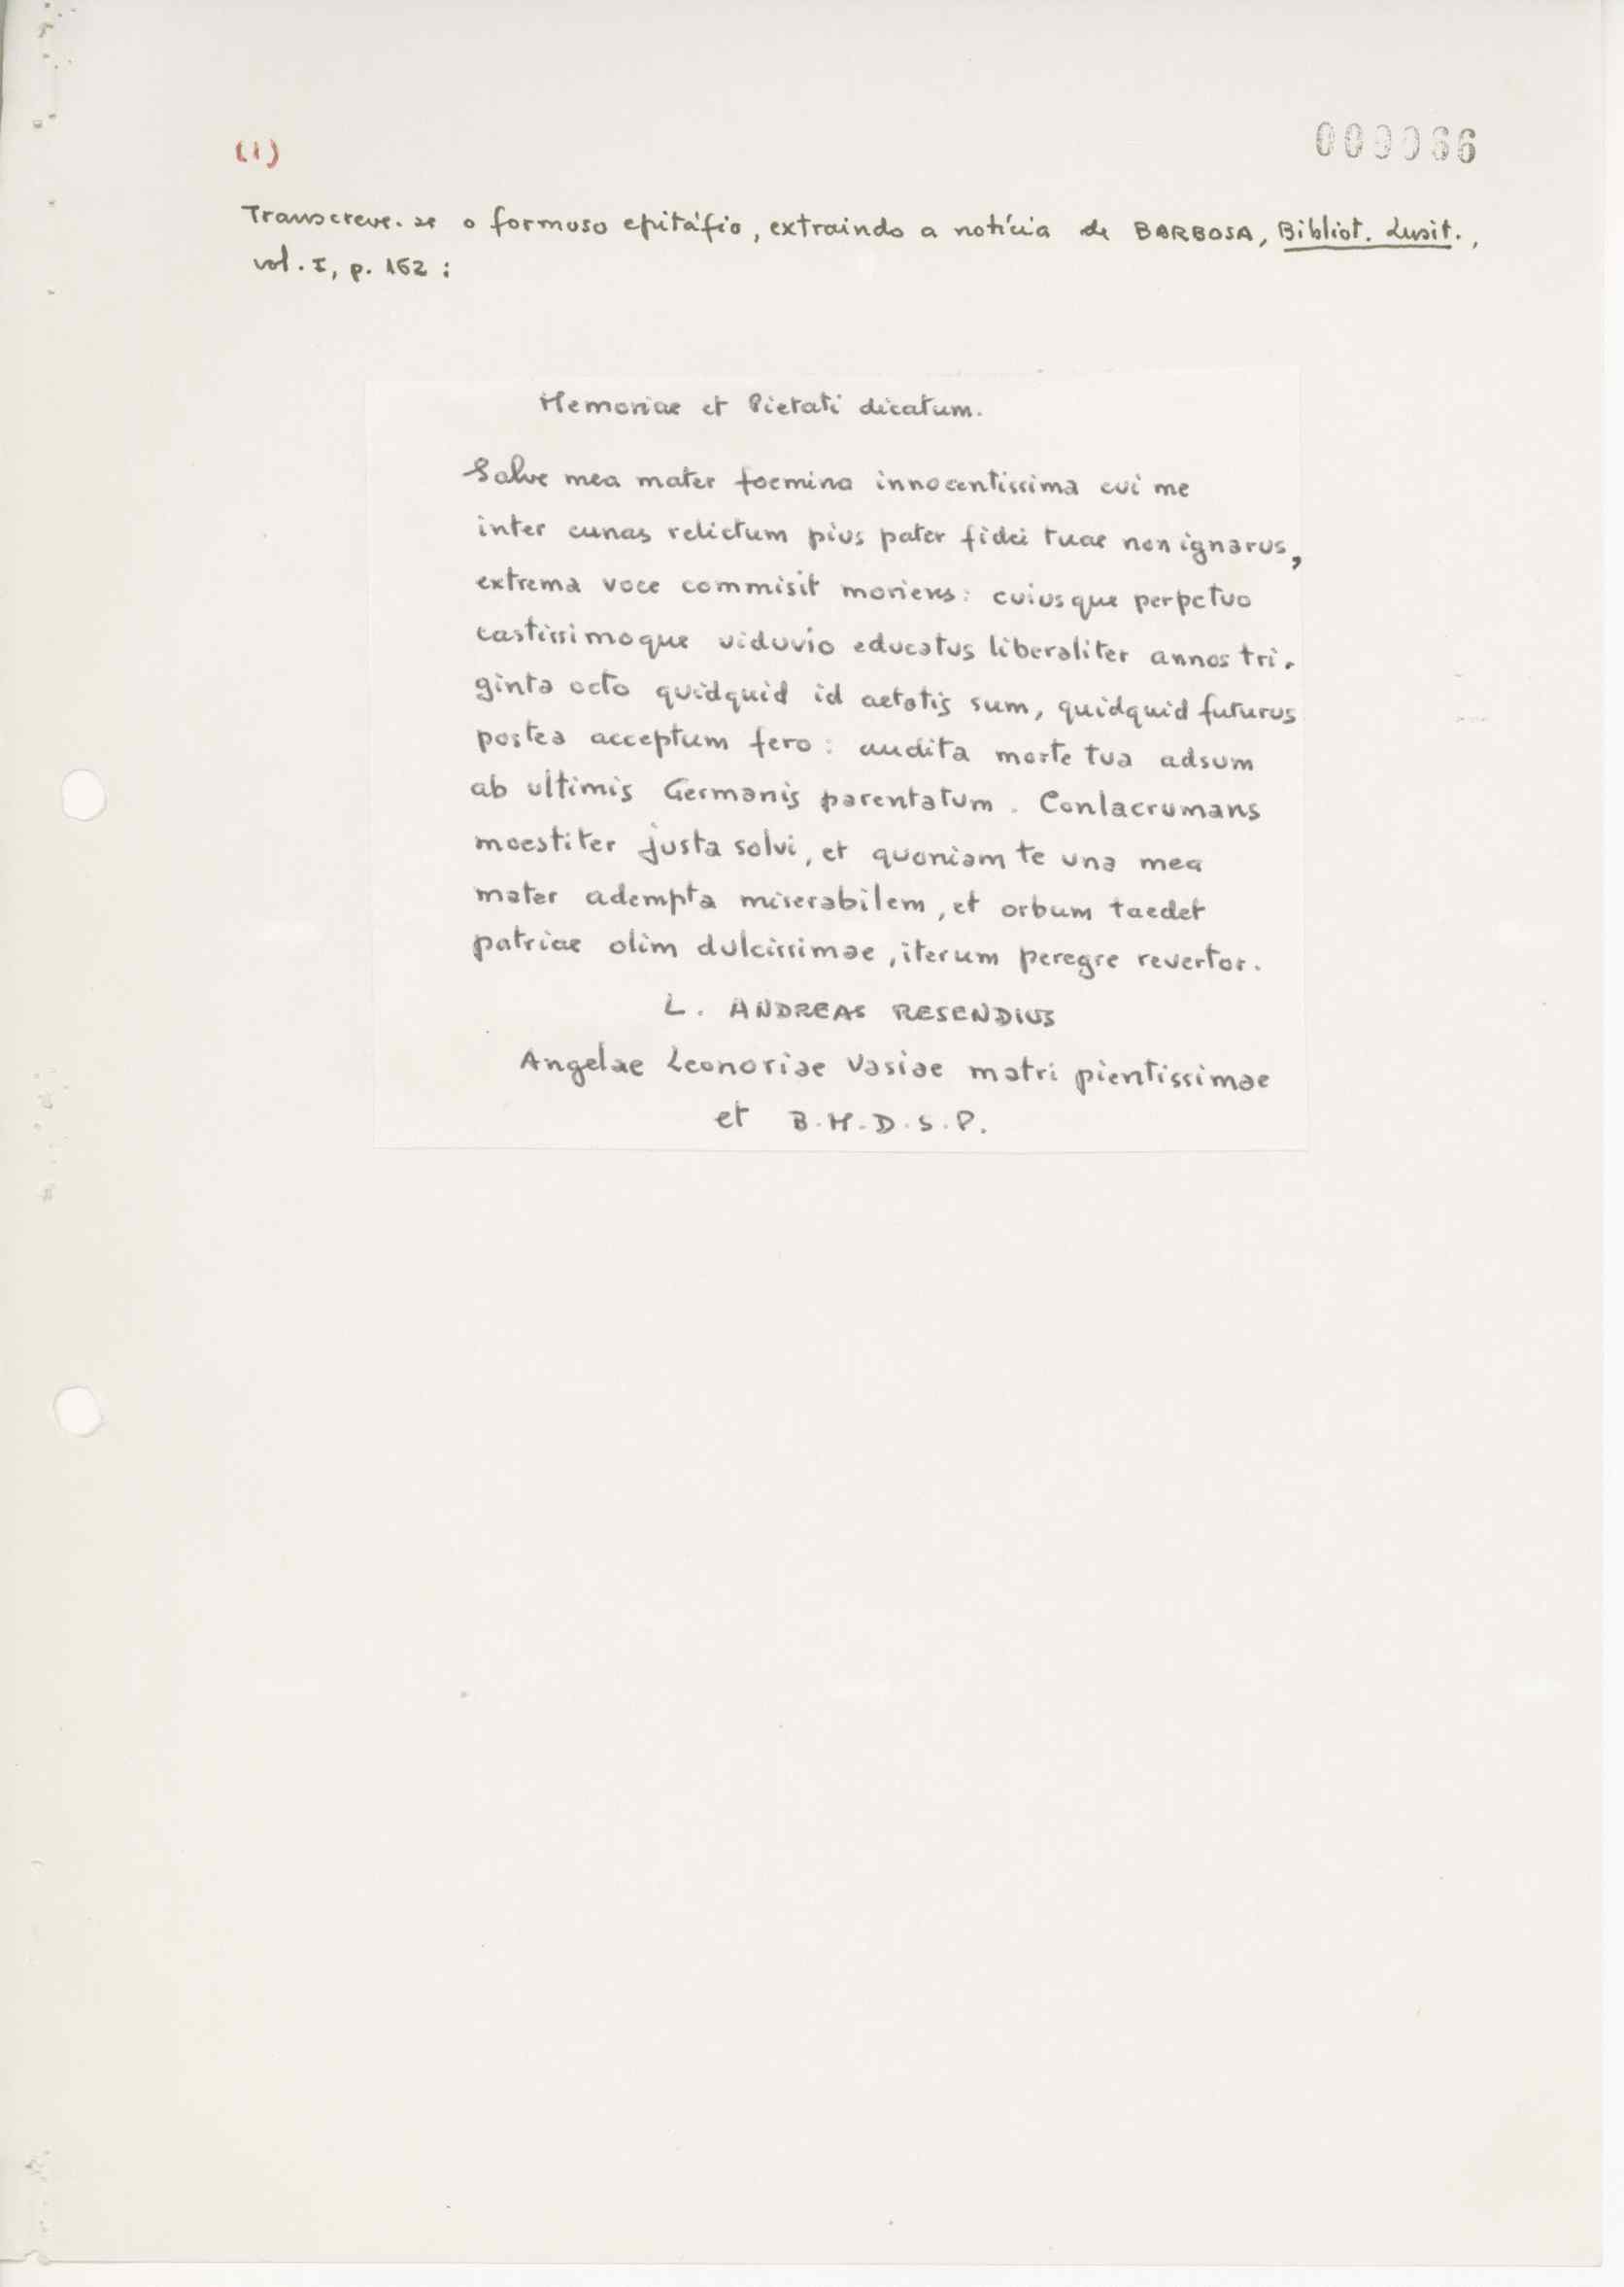 (1)
000066
Transcreve-se o formoso epitáfio, extraindo a notícia de BARBOSA, Bibliot. Lusit.,
vol. I, p. 162 :
Memoriae et Pietati dicatum.
Salve mea mater foemina innocentissima cui me
inter cunas relictum pius pater fidei tuae non ignarus,
extrema voce commisit moriens: cuiusque perpetuo
castissimoque viduvio educatus liberaliter annos tri-
ginta octo quidquid id aetatis sum, quidquid futurus
postea acceptum fero: audita morte tua adsum
ab ultimis Germanis parentatum. Conlacrumans
moestiter justa solvi, et quoniam te una mea
mater adempta miserabilem, et orbum taedet
patriae olim dulcissimae, iterum peregre revertor.
L. ANDREAS RESENDIUS
Angelae Leonoriae Vasiae matri pientissimae
et B.M.D.S.P.